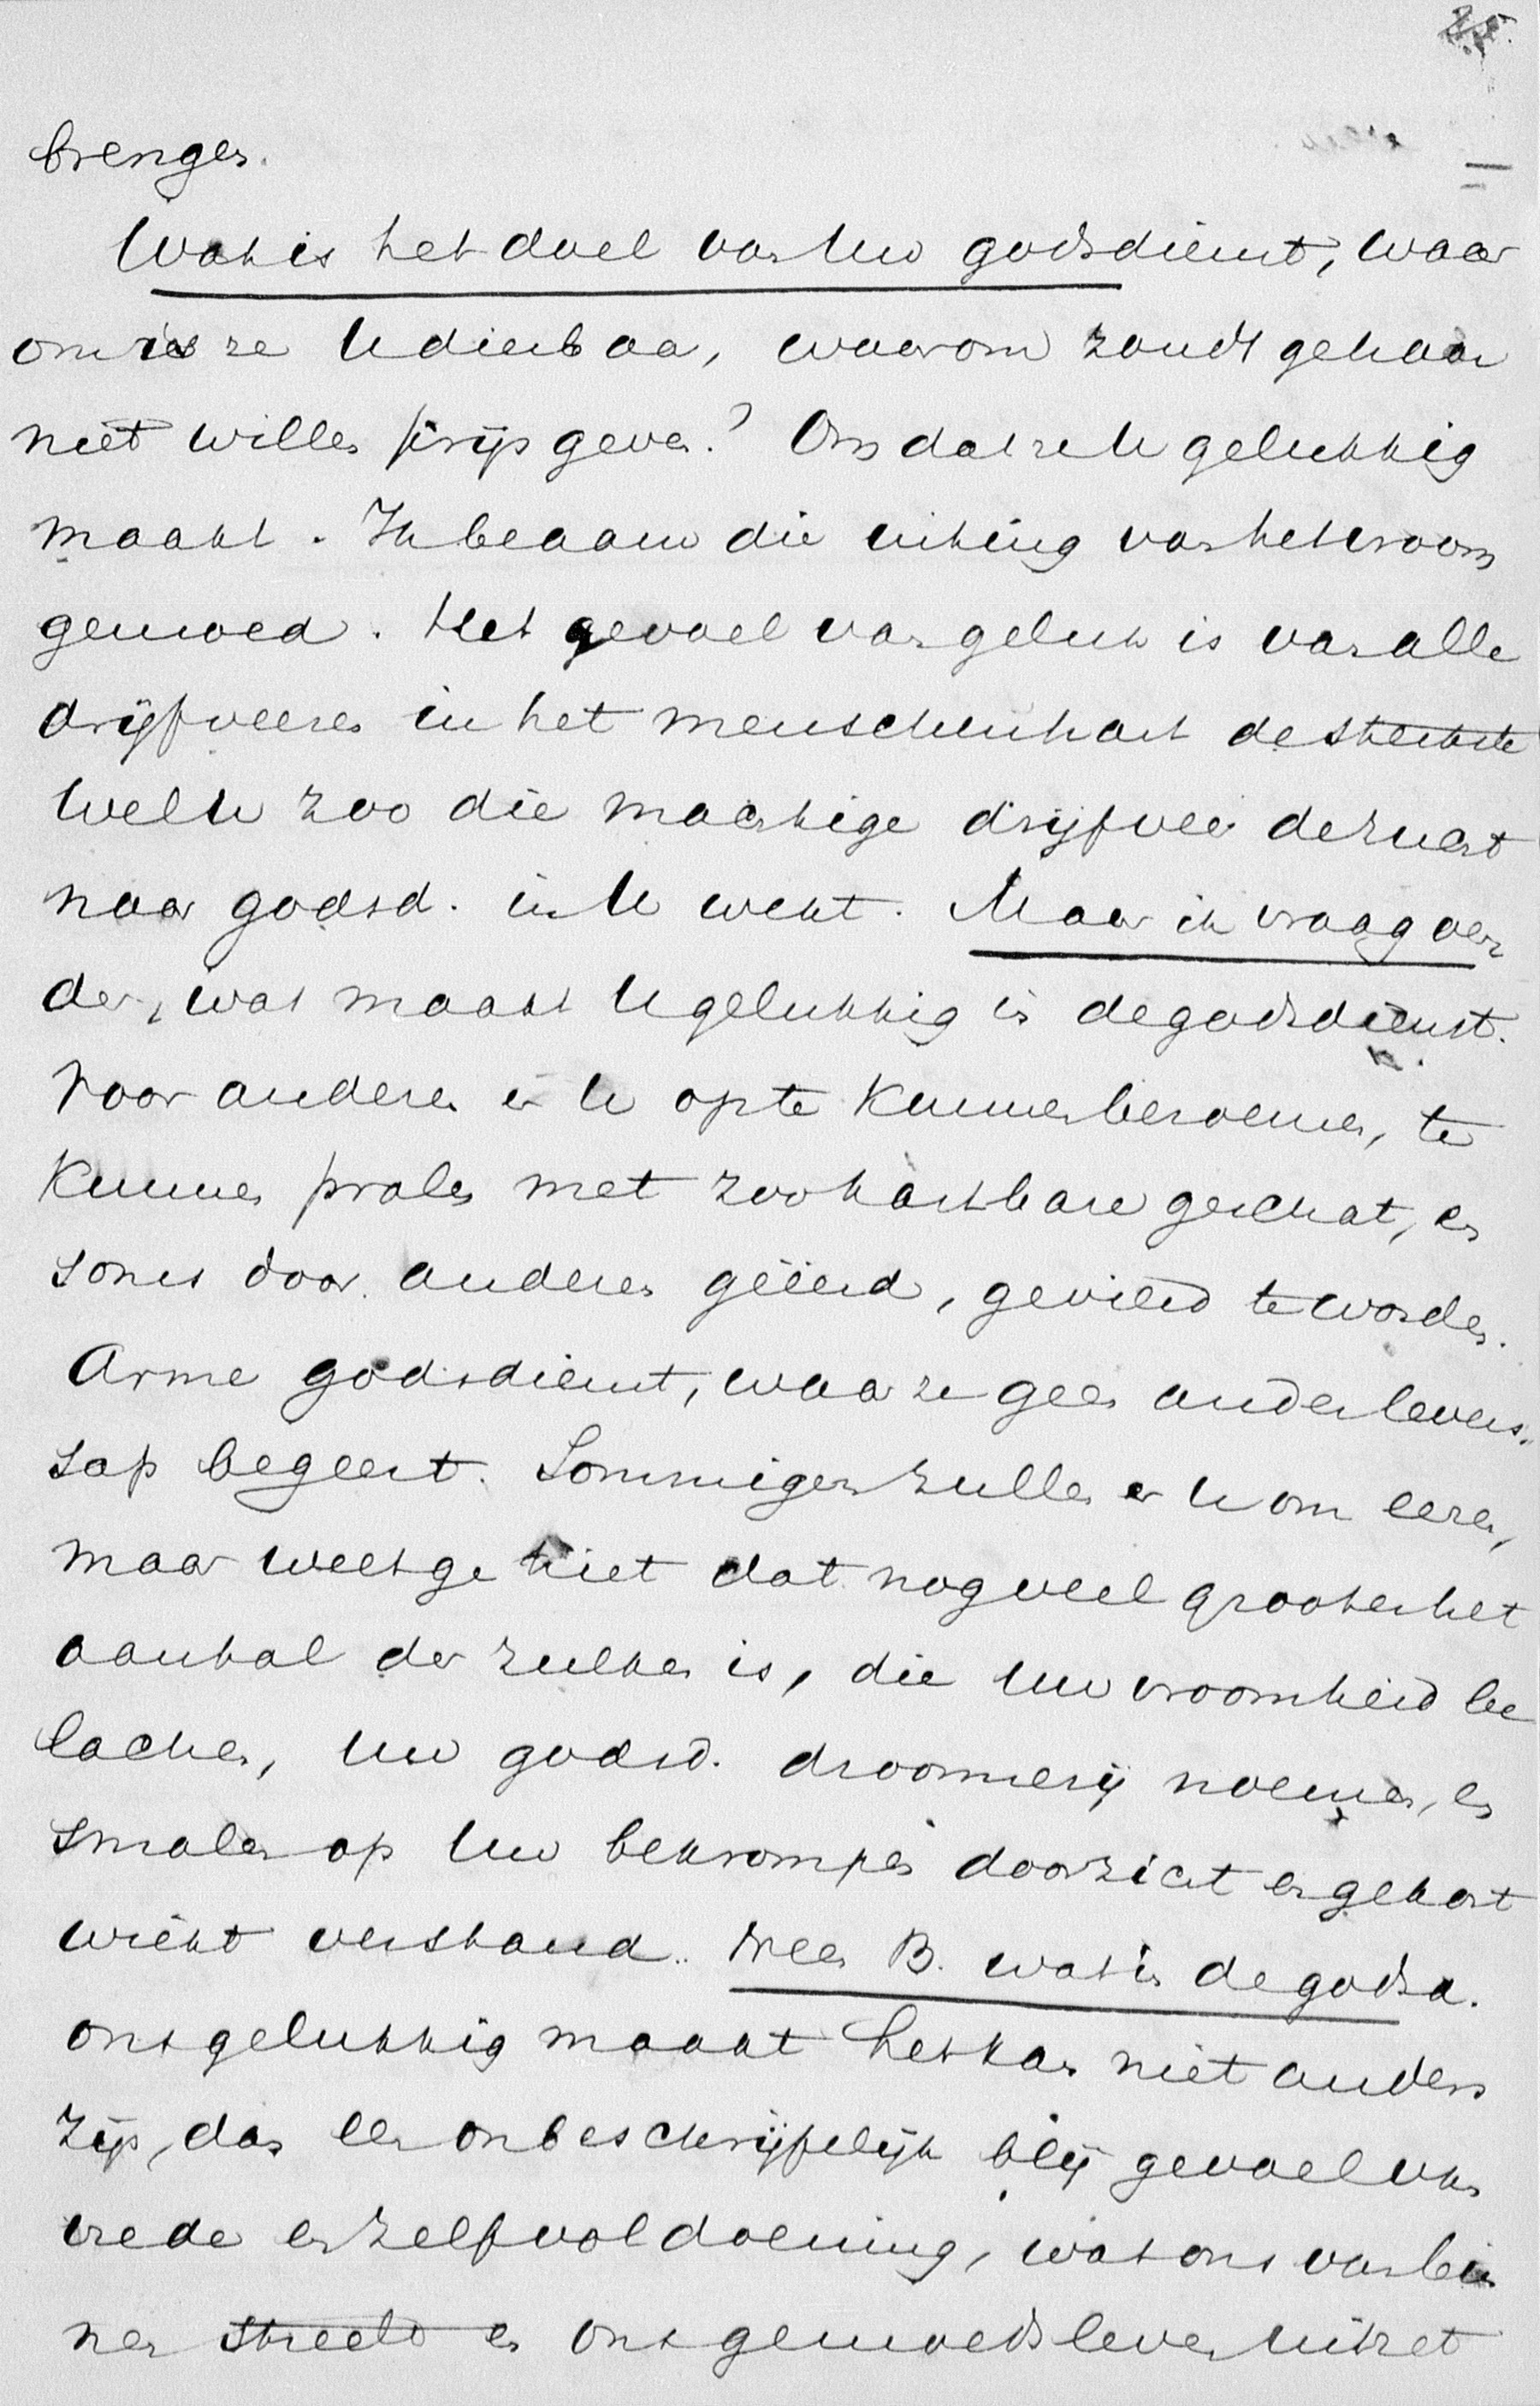 25.
brengen.
Wat is het doel van Uw godsdienst, waar
om is ze U dierbaar, waarom zoudt ge haar
niet willen prijs geven? Omdat ze U gelukkig
maakt. Ik beaam die uiting van het vroom
gemoed. Het gevoel van geluk is van alle
drijfveeren in het menschenhart de sterkste
Welk zoo die machtige drijfveer de zucht
naar godsd. in U wekt. Maar ik vraag ver
der, wat maakt U gelukkig in de godsdienst.
Voor anderen er U op te kunnen beroemen, te
kunnen pralen met zoo kostbare geschat, en
soms door anderen geëerd, gevierd te worden.
Arme godsdienst, waar ze geen ander levens-
sap begeert. Sommigen zullen er U om eeren,
maar weet ge niet dat nog veel grooter het
aantal der zulken is, die Uw vroomheid be
lachen, Uw godsd. droomerij noemen, en
smalen op Uw bekrompen doorzicht en gekort
wiekt verstand. Neen B. wat in de godsd.
ons gelukkig maakt het kan niet anders
zijn, dan een onbeschrijfelijk blij gevoel van
vrede en zelfvoldoening, wat ons van bin
nen streelt en ons gemoedsleven uitzet